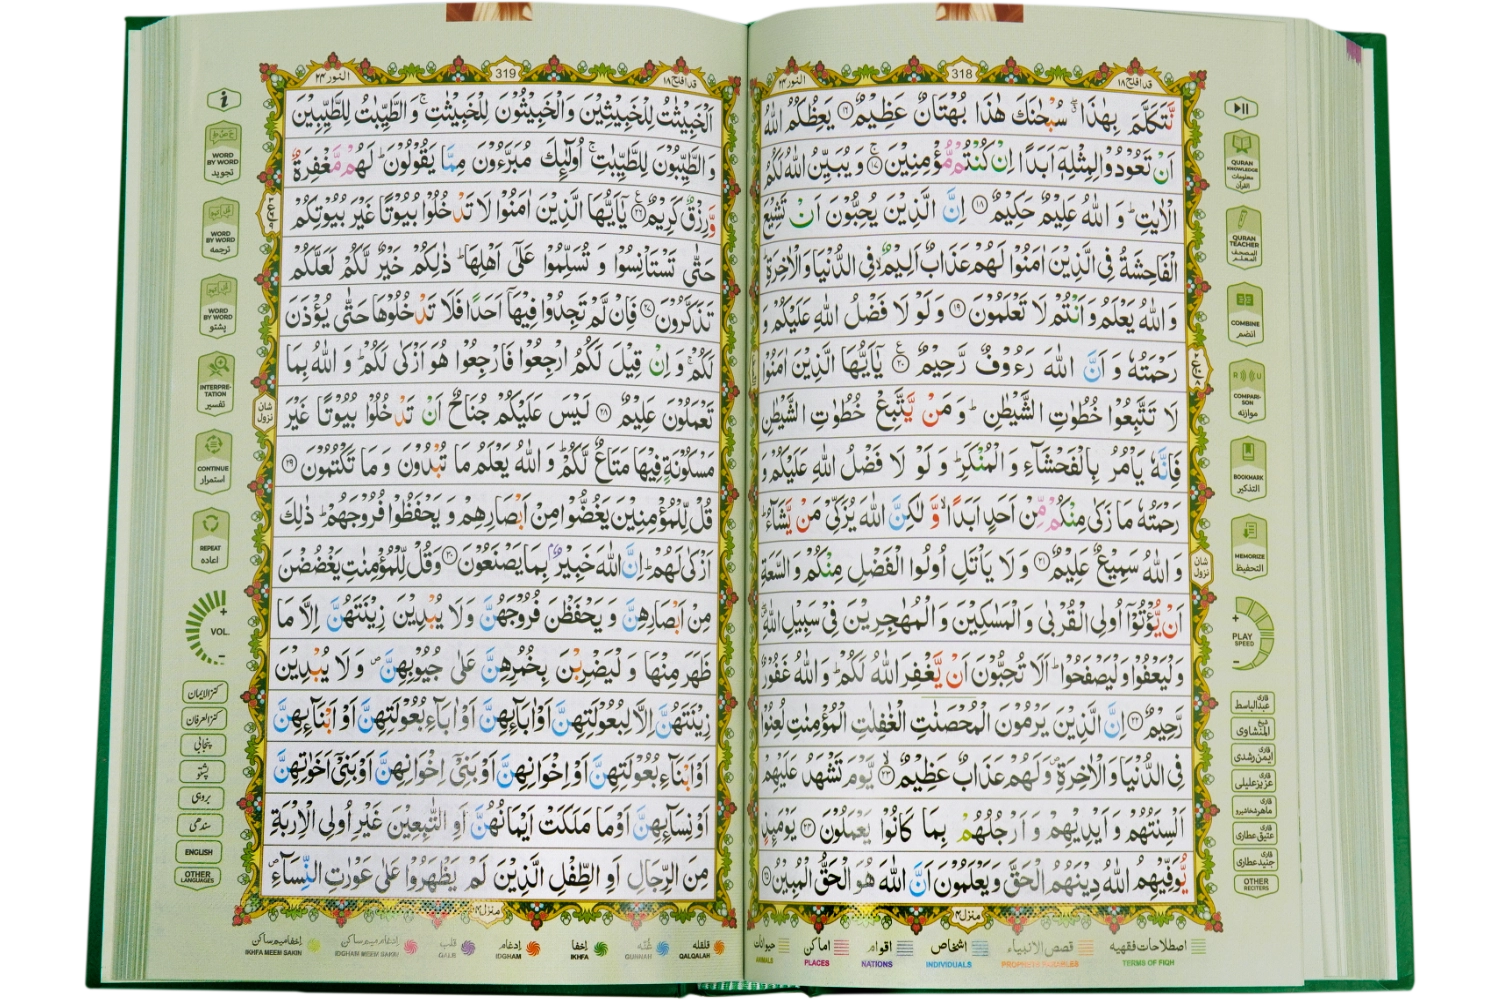 قد افلح ۱۸
318
النور ۲۴
نَّتَكَلَّمَ بِهٰذَا ۖ سُبْحٰنَكَ هٰذَا بُهْتَانٌ عَظِيْمٌ ﴿۱۶﴾ يَعِظُكُمُ اللّٰهُ
اَنْ تَعُوْدُوْا لِمِثْلِهٖۤ اَبَدًا اِنْ كُنْتُمْ مُّؤْمِنِيْنَ ﴿۱۷﴾ وَ يُبَيِّنُ اللّٰهُ لَكُمُ
الْاٰيٰتِ ؕ وَ اللّٰهُ عَلِيْمٌ حَكِيْمٌ ﴿۱۸﴾ اِنَّ الَّذِيْنَ يُحِبُّوْنَ اَنْ تَشِيْعَ
الْفَاحِشَةُ فِى الَّذِيْنَ اٰمَنُوْا لَهُمْ عَذَابٌ اَلِيْمٌ ۙ فِى الدُّنْيَا وَ الْاٰخِرَةِ ؕ
وَ اللّٰهُ يَعْلَمُ وَ اَنْتُمْ لَا تَعْلَمُوْنَ ﴿۱۹﴾ وَ لَوْ لَا فَضْلُ اللّٰهِ عَلَيْكُمْ وَ
رَحْمَتُهٗ وَ اَنَّ اللّٰهَ رَءُوْفٌ رَّحِيْمٌ ﴿۲۰﴾ يٰۤاَيُّهَا الَّذِيْنَ اٰمَنُوْا
لَا تَتَّبِعُوْا خُطُوٰتِ الشَّيْطٰنِ ؕ وَ مَنْ يَّتَّبِعْ خُطُوٰتِ الشَّيْطٰنِ
فَاِنَّهٗ يَاْمُرُ بِالْفَحْشَآءِ وَ الْمُنْكَرِ ؕ وَ لَوْ لَا فَضْلُ اللّٰهِ عَلَيْكُمْ وَ
رَحْمَتُهٗ مَا زَكٰى مِنْكُمْ مِّنْ اَحَدٍ اَبَدًا ۙ وَّ لٰكِنَّ اللّٰهَ يُزَكِّىْ مَنْ يَّشَآءُ ؕ
وَ اللّٰهُ سَمِيْعٌ عَلِيْمٌ ﴿۲۱﴾ وَ لَا يَاْتَلِ اُولُوا الْفَضْلِ مِنْكُمْ وَ السَّعَةِ
اَنْ يُّؤْتُوْۤا اُولِى الْقُرْبٰى وَ الْمَسٰكِيْنَ وَ الْمُهٰجِرِيْنَ فِىْ سَبِيْلِ اللّٰهِ
وَ لْيَعْفُوْا وَ لْيَصْفَحُوْا ؕ اَلَا تُحِبُّوْنَ اَنْ يَّغْفِرَ اللّٰهُ لَكُمْ ؕ وَ اللّٰهُ غَفُوْرٌ
رَّحِيْمٌ ﴿۲۲﴾ اِنَّ الَّذِيْنَ يَرْمُوْنَ الْمُحْصَنٰتِ الْغٰفِلٰتِ الْمُؤْمِنٰتِ لُعِنُوْا
فِى الدُّنْيَا وَ الْاٰخِرَةِ ۪ وَ لَهُمْ عَذَابٌ عَظِيْمٌ ﴿۲۳﴾ يَّوْمَ تَشْهَدُ عَلَيْهِمْ
اَلْسِنَتُهُمْ وَ اَيْدِيْهِمْ وَ اَرْجُلُهُمْ بِمَا كَانُوْا يَعْمَلُوْنَ ﴿۲۴﴾ يَوْمَئِذٍ
يُّوَفِّيْهِمُ اللّٰهُ دِيْنَهُمُ الْحَقَّ وَ يَعْلَمُوْنَ اَنَّ اللّٰهَ هُوَ الْحَقُّ الْمُبِيْنُ ﴿۲۵﴾
منزل ۴
شان نزول
QURAN KNOWLEDGE
معلومات القرآن
QURAN TEACHER
المصحف المعلم
COMBINE
انضم
R U
COMPARISON
موازنه
BOOKMARK
التذكير
MEMORIZE
التحفيظ
+
PLAY SPEED
-
قاری عبدالباسط
شیخ المنشاوی
قاری ایمن رشدی
قاری عزیز علیلی
قاری عتیق عطاری
قاری جنید عطاری
OTHER RECITERS
اصطلاحات فقهیه
TERMS OF FIQH
قصص الانبیاء
اشخاص
INDIVIDUALS
اقوام
NATIONS
اماکن
PLACES
حیوانات
ANIMALS
قد افلح ۱۸
319
النور ۲۴
اَلْخَبِيْثٰتُ لِلْخَبِيْثِيْنَ وَ الْخَبِيْثُوْنَ لِلْخَبِيْثٰتِ ۚ وَ الطَّيِّبٰتُ لِلطَّيِّبِيْنَ
وَ الطَّيِّبُوْنَ لِلطَّيِّبٰتِ ۚ اُولٰٓئِكَ مُبَرَّءُوْنَ مِمَّا يَقُوْلُوْنَ ؕ لَهُمْ مَّغْفِرَةٌ
وَّ رِزْقٌ كَرِيْمٌ ﴿۲۶﴾ يٰۤاَيُّهَا الَّذِيْنَ اٰمَنُوْا لَا تَدْخُلُوْا بُيُوْتًا غَيْرَ بُيُوْتِكُمْ
حَتّٰى تَسْتَاْنِسُوْا وَ تُسَلِّمُوْا عَلٰۤى اَهْلِهَا ؕ ذٰلِكُمْ خَيْرٌ لَّكُمْ لَعَلَّكُمْ
تَذَكَّرُوْنَ ﴿۲۷﴾ فَاِنْ لَّمْ تَجِدُوْا فِيْهَاۤ اَحَدًا فَلَا تَدْخُلُوْهَا حَتّٰى يُؤْذَنَ
لَكُمْ ۚ وَ اِنْ قِيْلَ لَكُمُ ارْجِعُوْا فَارْجِعُوْا هُوَ اَزْكٰى لَكُمْ ؕ وَ اللّٰهُ بِمَا
تَعْمَلُوْنَ عَلِيْمٌ ﴿۲۸﴾ لَيْسَ عَلَيْكُمْ جُنَاحٌ اَنْ تَدْخُلُوْا بُيُوْتًا غَيْرَ
مَسْكُوْنَةٍ فِيْهَا مَتَاعٌ لَّكُمْ ؕ وَ اللّٰهُ يَعْلَمُ مَا تُبْدُوْنَ وَ مَا تَكْتُمُوْنَ ﴿۲۹﴾
قُلْ لِّلْمُؤْمِنِيْنَ يَغُضُّوْا مِنْ اَبْصَارِهِمْ وَ يَحْفَظُوْا فُرُوْجَهُمْ ؕ ذٰلِكَ
اَزْكٰى لَهُمْ ؕ اِنَّ اللّٰهَ خَبِيْرٌۢ بِمَا يَصْنَعُوْنَ ﴿۳۰﴾ وَ قُلْ لِّلْمُؤْمِنٰتِ يَغْضُضْنَ
مِنْ اَبْصَارِهِنَّ وَ يَحْفَظْنَ فُرُوْجَهُنَّ وَ لَا يُبْدِيْنَ زِيْنَتَهُنَّ اِلَّا مَا
ظَهَرَ مِنْهَا وَ لْيَضْرِبْنَ بِخُمُرِهِنَّ عَلٰى جُيُوْبِهِنَّ ۪ وَ لَا يُبْدِيْنَ
زِيْنَتَهُنَّ اِلَّا لِبُعُوْلَتِهِنَّ اَوْ اٰبَآئِهِنَّ اَوْ اٰبَآءِ بُعُوْلَتِهِنَّ اَوْ اَبْنَآئِهِنَّ
اَوْ اَبْنَآءِ بُعُوْلَتِهِنَّ اَوْ اِخْوَانِهِنَّ اَوْ بَنِىْۤ اِخْوَانِهِنَّ اَوْ بَنِىْۤ اَخَوٰتِهِنَّ
اَوْ نِسَآئِهِنَّ اَوْ مَا مَلَكَتْ اَيْمَانُهُنَّ اَوِ التّٰبِعِيْنَ غَيْرِ اُولِى الْاِرْبَةِ
مِنَ الرِّجَالِ اَوِ الطِّفْلِ الَّذِيْنَ لَمْ يَظْهَرُوْا عَلٰى عَوْرٰتِ النِّسَآءِ ۪
منزل ۴
شان نزول
i
WORD BY WORD
تجوید
WORD BY WORD
ترجمه
WORD BY WORD
پشتو
INTERPRETATION
تفسیر
CONTINUE
استمرار
REPEAT
اعاده
+
VOL.
-
کنزالایمان
کنزالعرفان
پنجابی
پشتو
بروہی
سندھی
ENGLISH
OTHER LANGUAGES
قلقله
QALQALAH
غنّه
GUNNAH
اخفا
IKHFA
ادغام
IDGHAM
قلب
QALB
ادغام میم ساکن
IDGHAM MEEM SAKIN
اخفا میم ساکن
IKHFA MEEM SAKIN